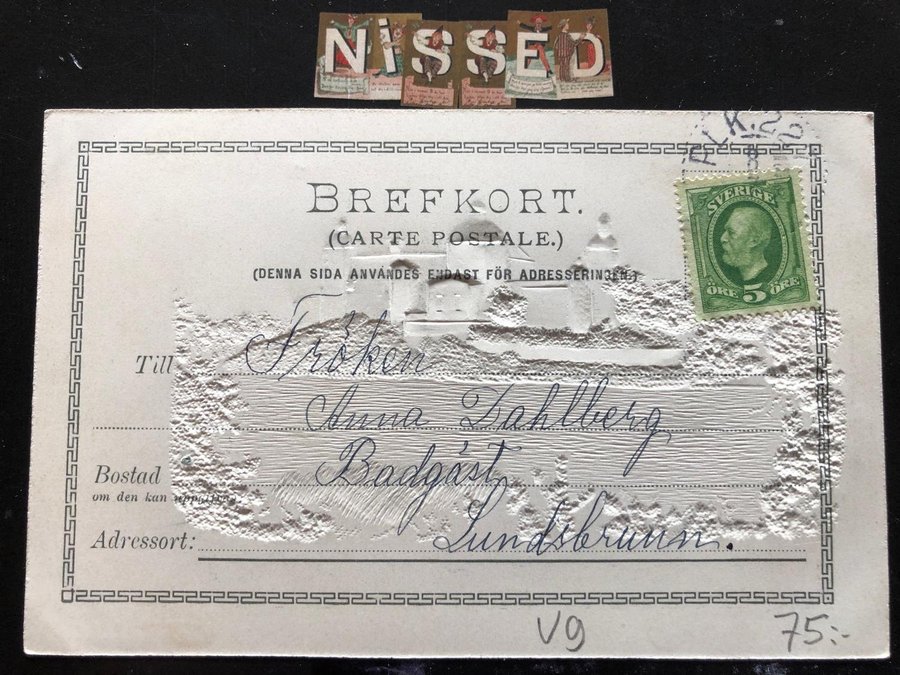 NiSSED
BREFKORT.
(CARTE POSTALE.)
(DENNA SIDA ANVÄNDES ENDAST FÖR ADRESSERINGEN.)
SVERIGE
ÖRE 5 ÖRE
Till Fröken
Anna Dahlberg
Bostad Badgäst
om den kan uppgifvas
Adressort: Lundsbrunn.
V9
75:-